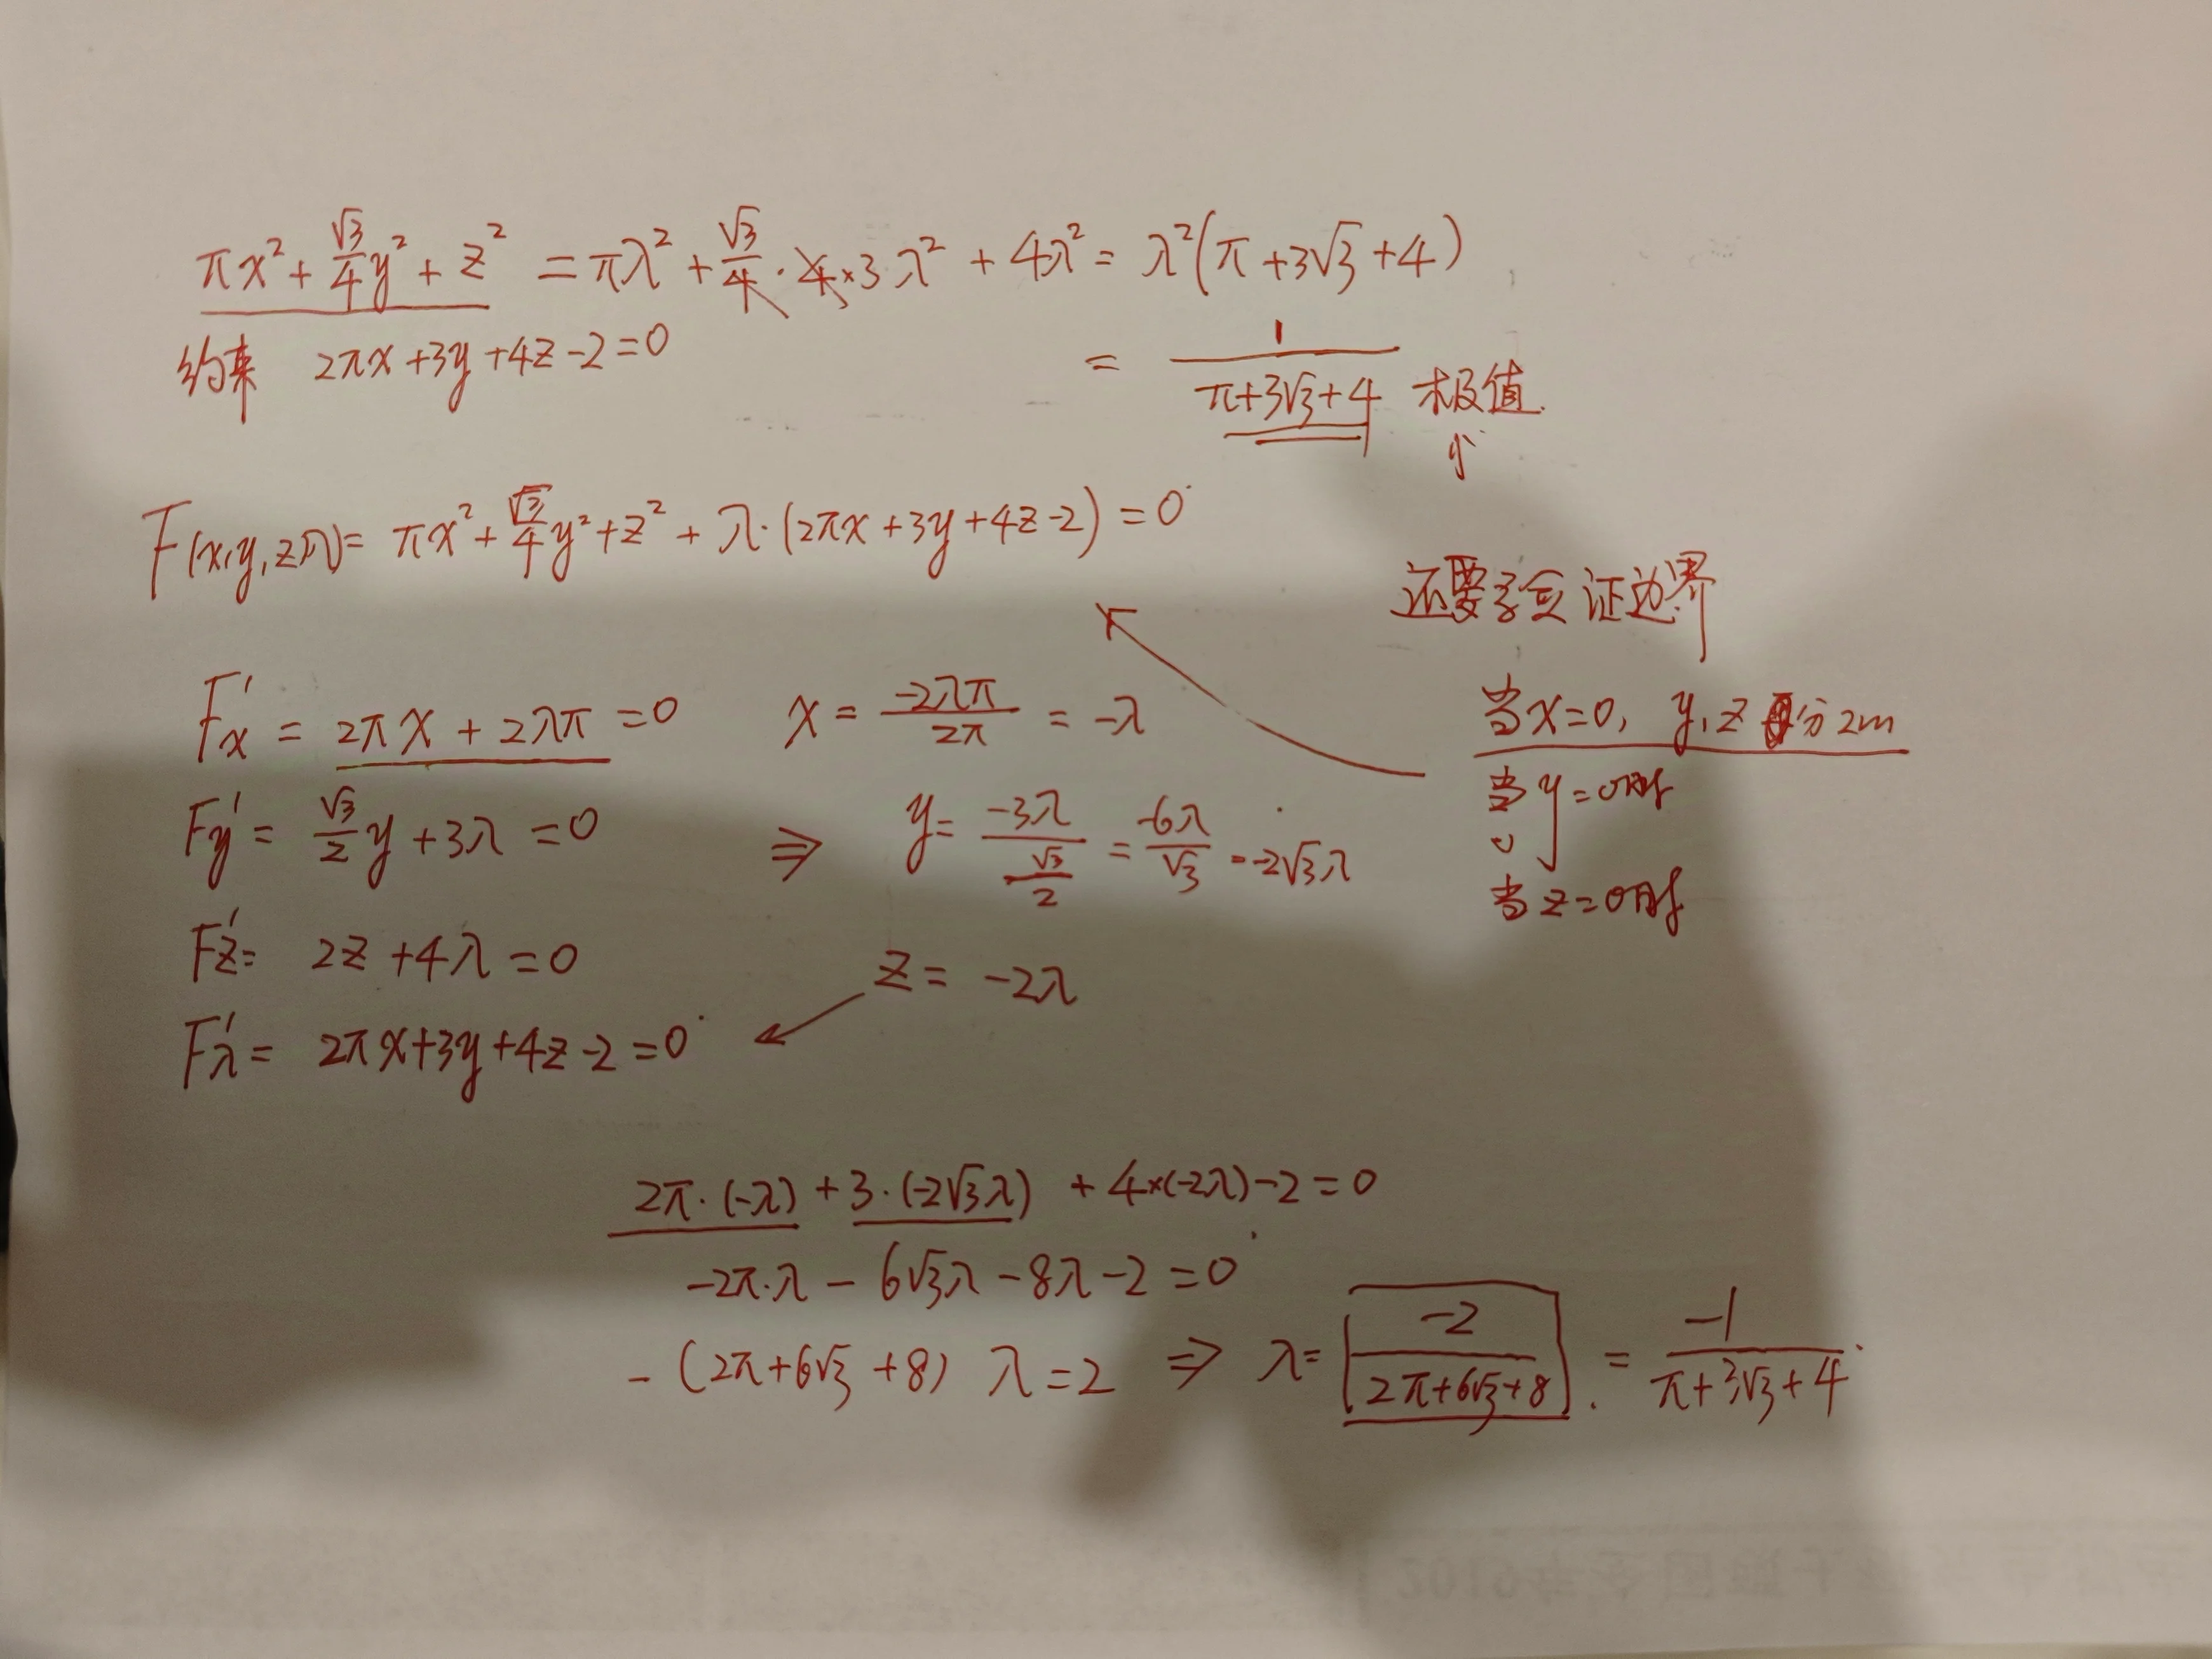 πx² + √3/4 y² + z² = πλ² + √3/4 · 4×3 λ² + 4λ² = λ²(π + 3√3 + 4)
约束 2πx + 3y + 4z - 2 = 0
= 1/(π + 3√3 + 4) 极值.
小
F(x,y,z,λ) = πx² + √3/4 y² + z² + λ·(2πx + 3y + 4z - 2) = 0
还要验证边界
F'x = 2πx + 2λπ = 0 x = -2λπ/2π = -λ
当x=0, y,z 分 2m
F'y = √3/2 y + 3λ = 0 ⇒ y = -3λ/(√3/2) = -6λ/√3 = -2√3λ
当y=0时
当z=0时
F'z = 2z + 4λ = 0 z = -2λ
F'λ = 2πx + 3y + 4z - 2 = 0
2π·(-λ) + 3·(-2√3λ) + 4×(-2λ) - 2 = 0
-2π·λ - 6√3λ - 8λ - 2 = 0
-(2π + 6√3 + 8) λ = 2 ⇒ λ = -2/(2π + 6√3 + 8) = -1/(π + 3√3 + 4)